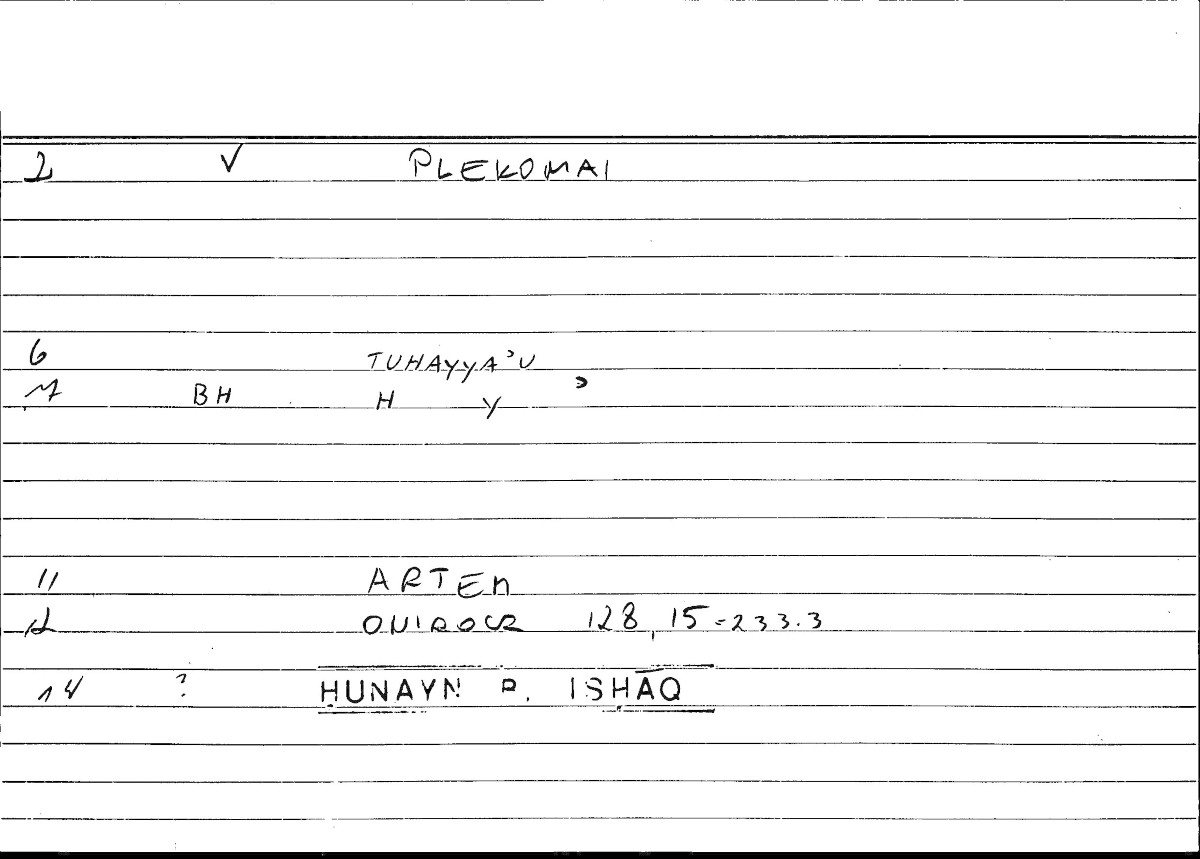 2 V PLEKOMAI
6 TUHAYYAʾU
BH H Y ʾ
11 ARTEM
ONIROCR 128,15-233.3
14 ? ḤUNAYN B. ISḤĀQ